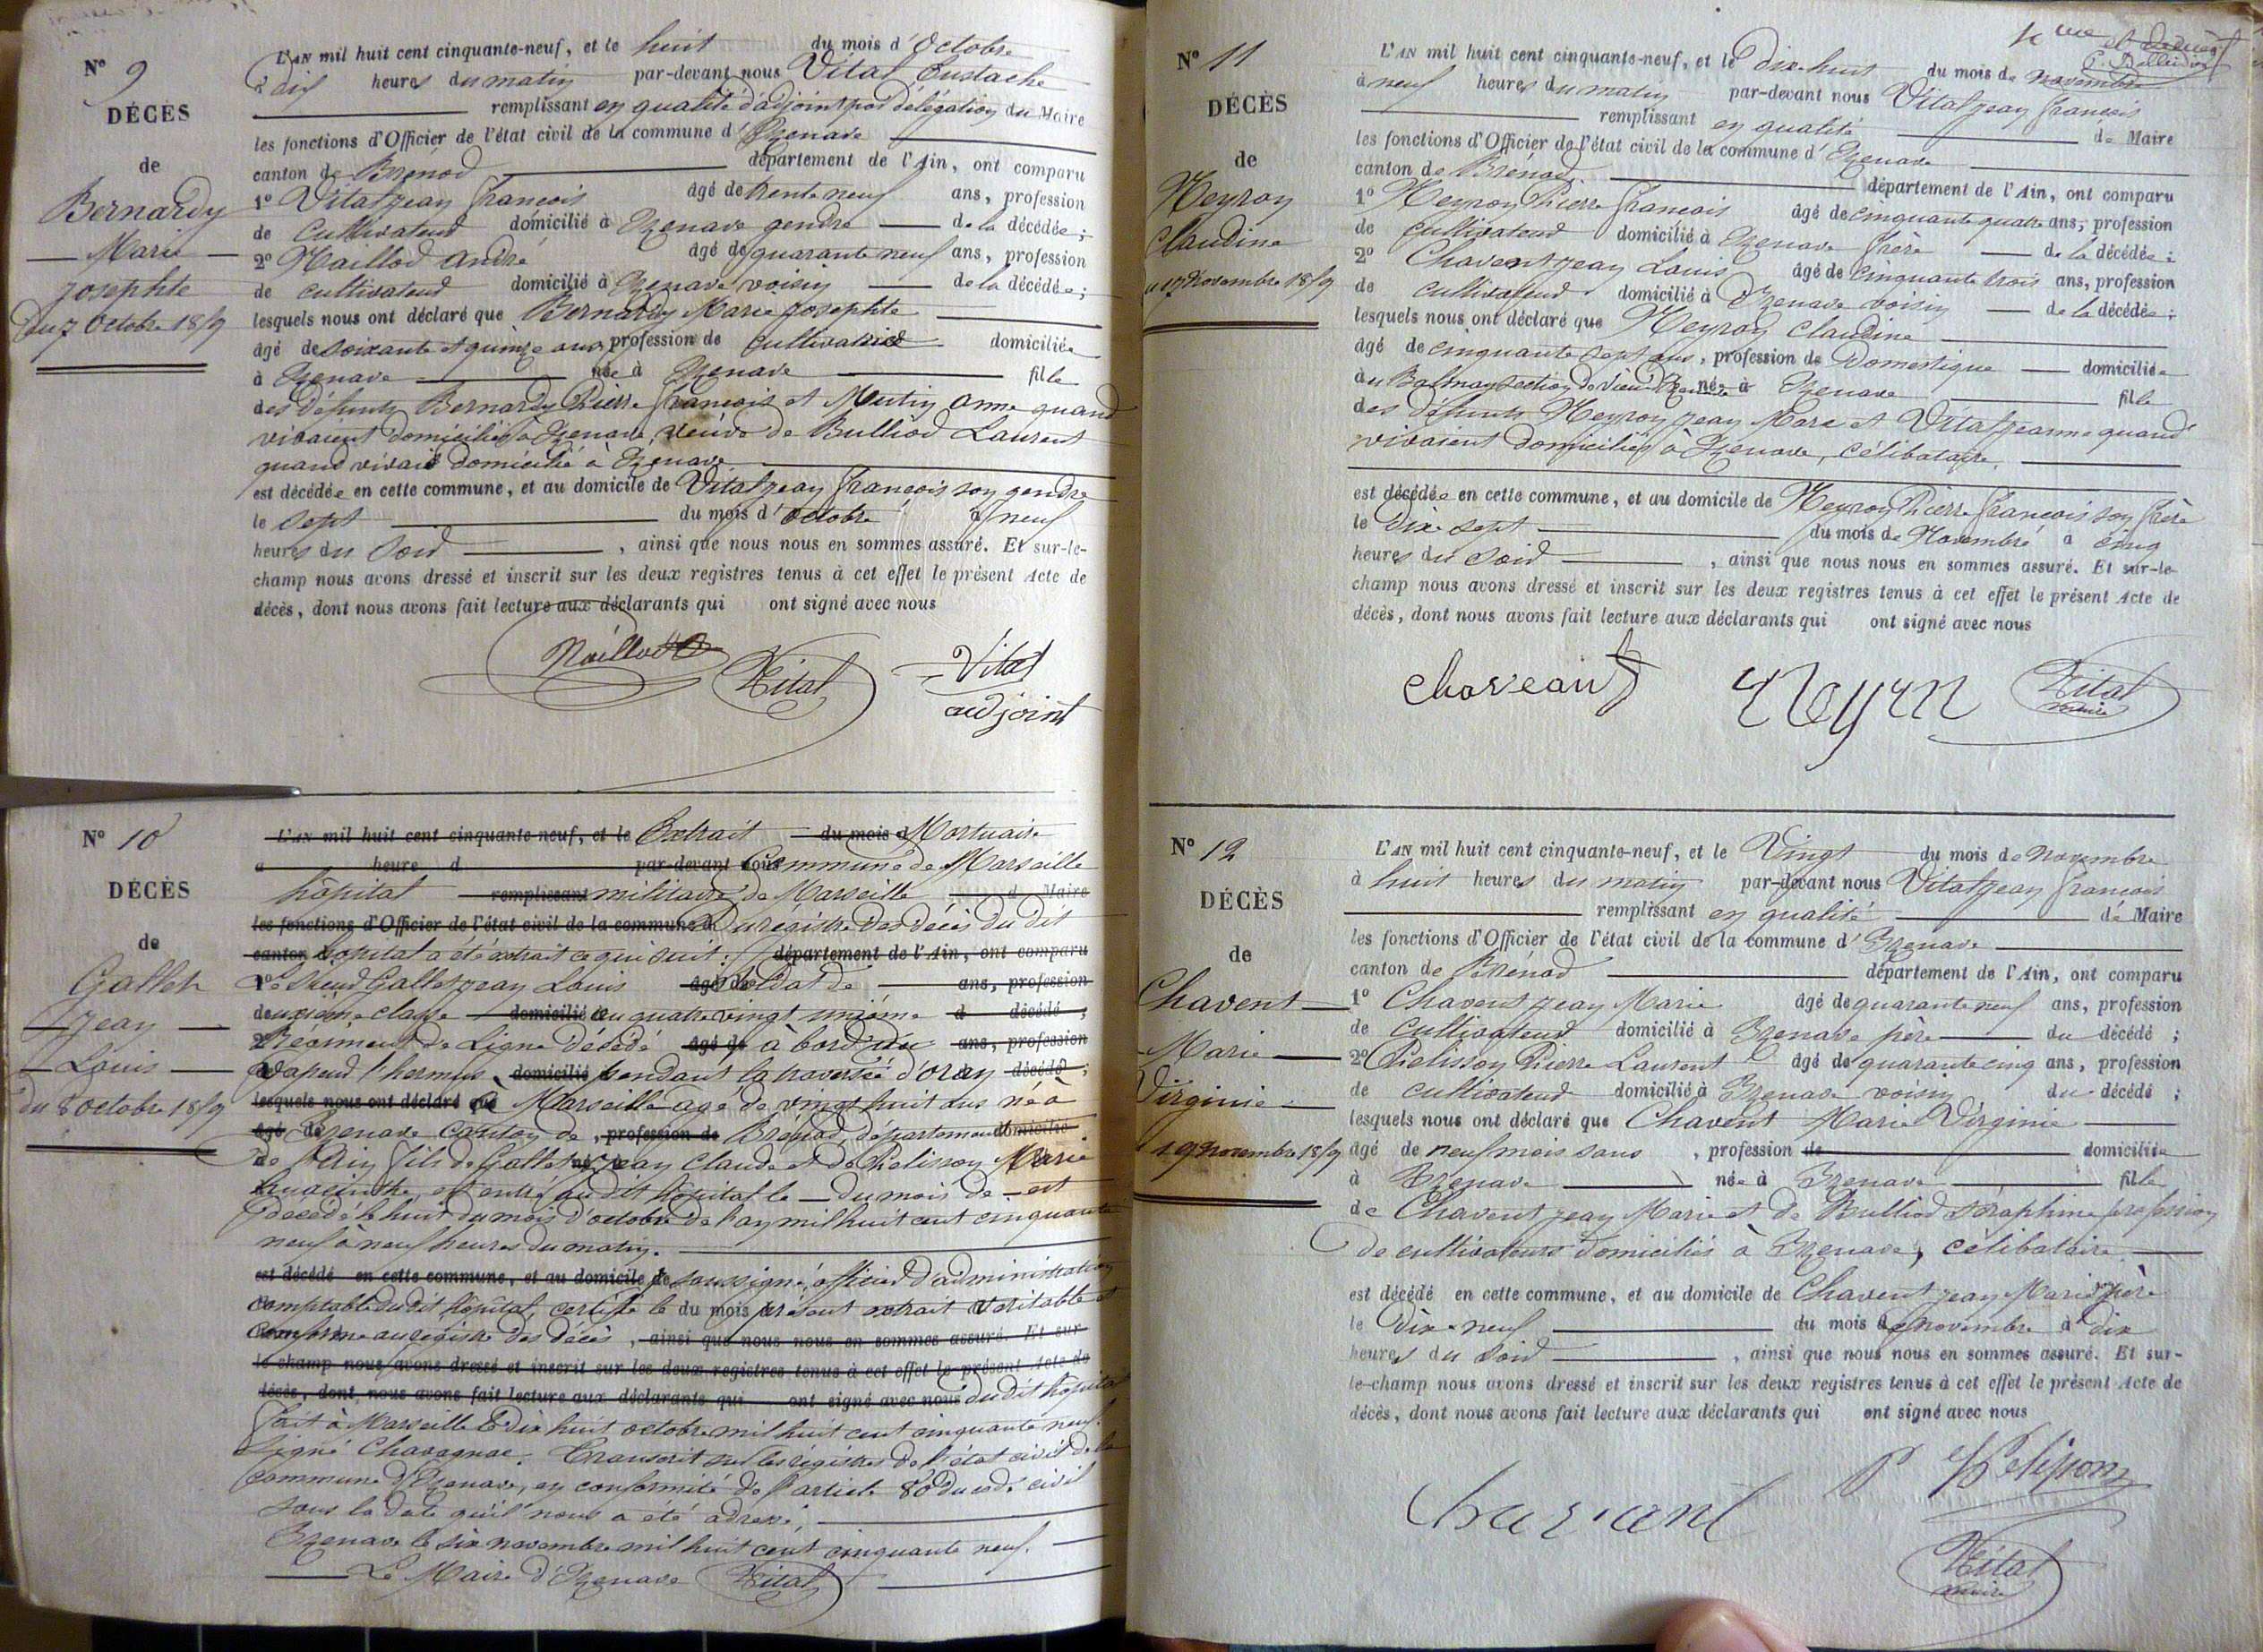 Nº 9
DÉCÈS
de
Bernardy
Marie
Josephte
Du 7 Octobre 1859
L'AN mil huit cent cinquante-neuf, et le huit du mois d'Octobre
à dix heures du matin par-devant nous Vital Eustache
remplissant en qualité d'adjoint par délégation du Maire
les fonctions d'Officier de l'état civil de la commune d'Izenave
canton de Brénod département de l'Ain, ont comparu
1º Vital jean françois âgé de trente neuf ans, profession
de cultivateur domicilié à Izenave gendre de la décédée ;
2º Maillod andré âgé de quarante neuf ans, profession
de cultivateur domicilié à Izenave voisin de la décédée ;
lesquels nous ont déclaré que Bernardy Marie josephte
âgé de soixante et quinze ans, profession de cultivatrice domiciliée
à Izenave née à Izenave fille
des défunts Bernardy Pierre françois et Mutin anne quand
vivaient domiciliés à Izenave, veuve de Bulliod Laurent
quand vivait domicilié à Izenave
est décédée en cette commune, et au domicile de Vital jean françois son gendre
le sept du mois d'octobre à neuf
heures du soir , ainsi que nous nous en sommes assuré. Et sur-le-
champ nous avons dressé et inscrit sur les deux registres tenus à cet effet le présent Acte de
décès, dont nous avons fait lecture aux déclarants qui ont signé avec nous
Maillod Vital Vital
adjoint
Nº 10
DÉCÈS
de
Gallet
jean
Louis
du 8 octobre 1859
L'AN mil huit cent cinquante-neuf, et le Extrait du mois d Mortuaire
a heure d par-devant nous Commune de Marseille
hôpital remplissant militaire de Marseille d Maire
les fonctions d'Officier de l'état civil de la commune d Du régistre des décès du dit
canton hopital a été extrait ce qui suit : département de l'Ain, ont comparu
1º Le Sieur Gallet jean Louis âgé de soldat de ans, profession
deuxième classe domicilié au quatre vingt unième d décédé ;
2º Régiment de Ligne décédé âgé de à bord du ans, profession
vapeur l'hermus domicilié pendant la traversée d'oran décédé ;
lesquels nous ont déclaré que à Marseille age de vingt huit ans né à
âgé de Izenave canton de , profession de Brénod, département domicilié
de l'Ain fils de Gallet né à jean Claude et de Pelisson Marie
hyacinthe, est entré au dit hôpital le — du mois de — est
décedé le huit du mois d'octobre de l'an mil huit cent cinquante
neuf à neuf heures du matin.
est décédé en cette commune, et au domicile de je soussigné, officier d'administration
comptable du dit hôpital, certifie le du mois présent extrait véritable et
conforme au régistre des décès , ainsi que nous nous en sommes assuré. Et sur
le champ nous avons dressé et inscrit sur les deux registres tenus à cet effet le présent Acte de
décès, dont nous avons fait lecture aux déclarants qui ont signé avec nous du dit hôpital
fait à Marseille le dix huit octobre mil huit cent cinquante neuf.
Signé Chavagnac. Transcrit sur les régistres de l'état civil de la
commune d'Izenave, en conformité de l'article 80 du code civil
sous la date qu'il nous a été adressé,
Izenave le six novembre mil huit cent cinquante neuf.
Le Maire d'Izenave Vital
Nº 11
DÉCÈS
de
Neyron
Claudine
17 Novembre 1859
L'AN mil huit cent cinquante-neuf, et le dix-huit du mois de novembre
à neuf heures du matin par-devant nous Vital jean françois
remplissant en qualité de Maire
les fonctions d'Officier de l'état civil de la commune d'Izenave
canton de Brénod département de l'Ain, ont comparu
1º Neyron Pierre françois âgé de cinquante quatre ans, profession
de cultivateur domicilié à Izenave frère de la décédée ;
2º Chavent jean Louis âgé de cinquante trois ans, profession
de cultivateur domicilié à Izenave voisin de la décédée ;
lesquels nous ont déclaré que Neyron Claudine
âgé de cinquante sept ans , profession de Domestique domiciliée
au Balmay section de Vieu d'Izenave née à Izenave fille
des défunts Neyron jean Marc et Vital jeanne quand
vivaient domiciliés à Izenave, célibataire,
est décédée en cette commune, et au domicile de Neyron Pierre françois son frère
le Dix-sept du mois de Novembre à cinq
heures du soir , ainsi que nous nous en sommes assuré. Et sur-le-
champ nous avons dressé et inscrit sur les deux registres tenus à cet effet le présent Acte de
décès, dont nous avons fait lecture aux déclarants qui ont signé avec nous
chaveant neyron Vital
maire
Nº 12
DÉCÈS
de
Chavent
Marie
Virginie
19 novembre 1859
L'AN mil huit cent cinquante-neuf, et le Vingt du mois de novembre
à huit heures du matin par-devant nous Vital jean françois
remplissant en qualité de Maire
les fonctions d'Officier de l'état civil de la commune d'Izenave
canton de Brénod département de l'Ain, ont comparu
1º Chavent jean Marie âgé de quarante neuf ans, profession
de cultivateur domicilié à Izenave père du décédé ;
2º Pelisson Pierre Laurent âgé de quarante cinq ans, profession
de cultivateur domicilié à Izenave voisin du décédé ;
lesquels nous ont déclaré que Chavent Marie Virginie
âgé de neuf mois sans , profession de domiciliée
à Izenave née à Izenave fille
de Chavent jean Marie et de Bulliod séraphine profession
de cultivateurs domiciliés à Izenave, célibataire
est décédé en cette commune, et au domicile de Chavent jean Marie son père
le Dix-neuf du mois de novembre à dix
heures du soir , ainsi que nous nous en sommes assuré. Et sur-
le-champ nous avons dressé et inscrit sur les deux registres tenus à cet effet le présent Acte de
décès, dont nous avons fait lecture aux déclarants qui ont signé avec nous
chavant P Pelisson
Vital
maire